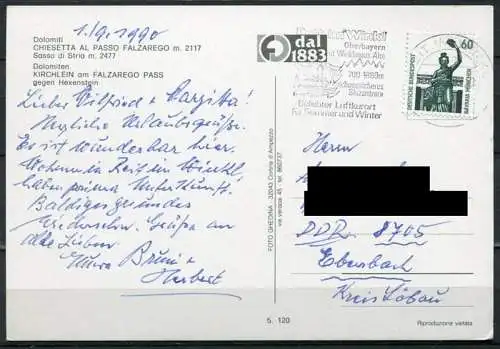 1.9.1990
Dolomiti
CHIESETTA AL PASSO FALZAREGO m. 2117
Sasso di Stria m. 2477
Dolomiten
KIRCHLEIN am FALZAREGO PASS
gegen Hexenstein
Lieber Wilfried + Margitta!
Herzliche Urlaubsgrüße.
Es ist wunderbar hier.
Wohnen in Reit im Winkl
haben prima Unterkunft.
Baldiges gesundes
Wiedersehn. Grüße an
alle Lieben
Eure
Herbert
G dal 1883
FOTO GHEDINA - 32043 Cortina d'Ampezzo
Reit im Winkl
Oberbayern
700-1800m
Schneesicheres
Skizentrum
Beliebter Luftkurort
für Sommer und Winter
60
DEUTSCHE BUNDESPOST
BAVARIA MÜNCHEN
Herrn
DDR 8705
Ebersbach
Kreis Löbau
5. 120
Riproduzione vietata